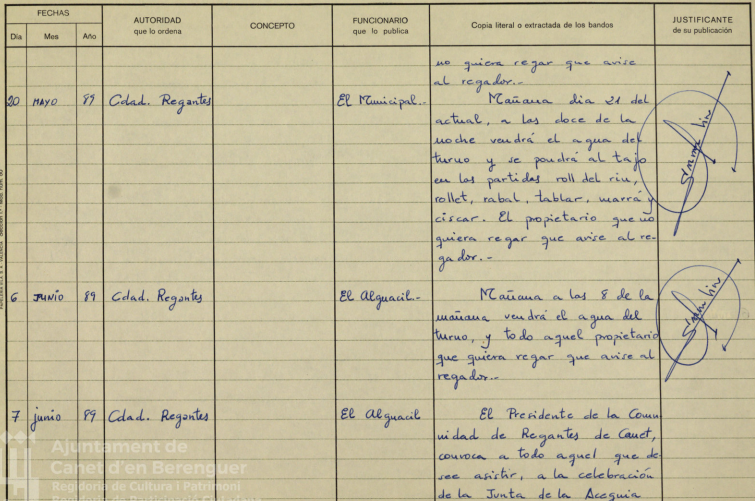 FECHAS
Día Mes Año
AUTORIDAD
que lo ordena
CONCEPTO
FUNCIONARIO
que lo publica
Copia literal o extractada de los bandos
JUSTIFICANTE
de su publicación
no quiera regar que avise
al regador.-
20 MAYO 89 Cdad. Regantes El Municipal.- Mañana dia 21 del
actual, a las doce de la
noche vendrá el agua del
turno y se pondrá al tajo
en las partidas roll del riu,
rollet, rabal, tablar, marrá y
ciscar. El propietario que no
quiera regar que avise al re-
gador.-
6 JUNIO 89 Cdad. Regantes El Alguacil.- Mañana a las 8 de la
mañana vendrá el agua del
turno, y todo aquel propietario
que quiera regar que avise al
regador.-
7 junio 89 Cdad. Regantes El Alguacil El Presidente de la Comu
nidad de Regantes de Canet,
convoca a todo aquel que de-
see asistir, a la celebración
de la Junta de la Acequia
Ajuntament de
Canet d'en Berenguer
Regidoria de Cultura i Patrimoni